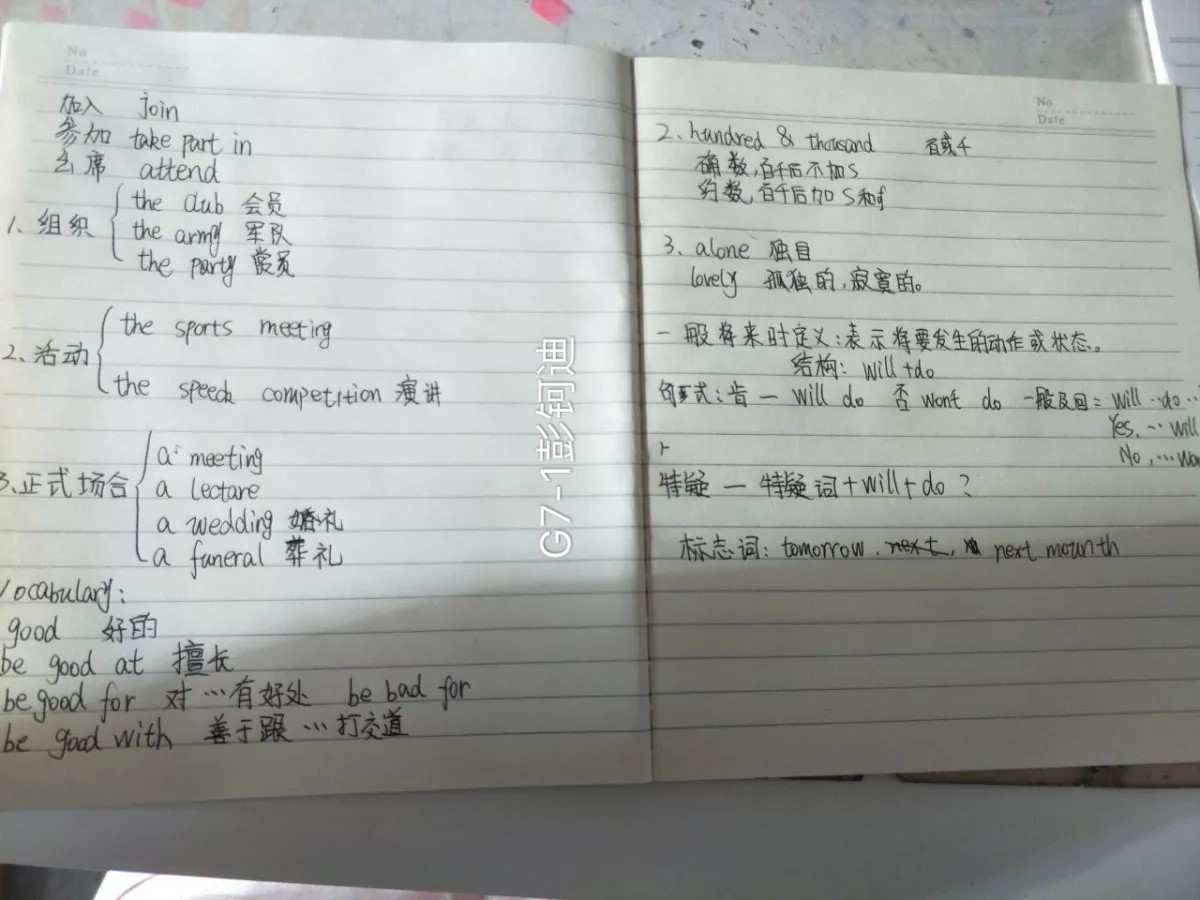 No
Date
加入 join
参加 take part in
出席 attend
1、组织
the club 会员
the army 军队
the party 党员
2、活动
the sports meeting
the speech competition 演讲
3、正式场合
a meeting
a lectare
a wedding 婚礼
a funeral 葬礼
Vocabulary:
good 好的
be good at 擅长
be good for 对…有好处 be bad for
be good with 善于跟…打交道
G7-1彭钶迪
No
Date
2、hundred & thousand 百或千
确数,百千后不加s
约数,百千后加s和of
3、alone 独自
lovely 孤独的,寂寞的。
一般将来时定义:表示将要发生的动作或状态。
结构: will+do
句式:肯一 will do 否 wont do 一般及回= will…do…
Yes,…will
No,…won
特疑一特疑词+will+do?
标志词: tomorrow, next, next mounth